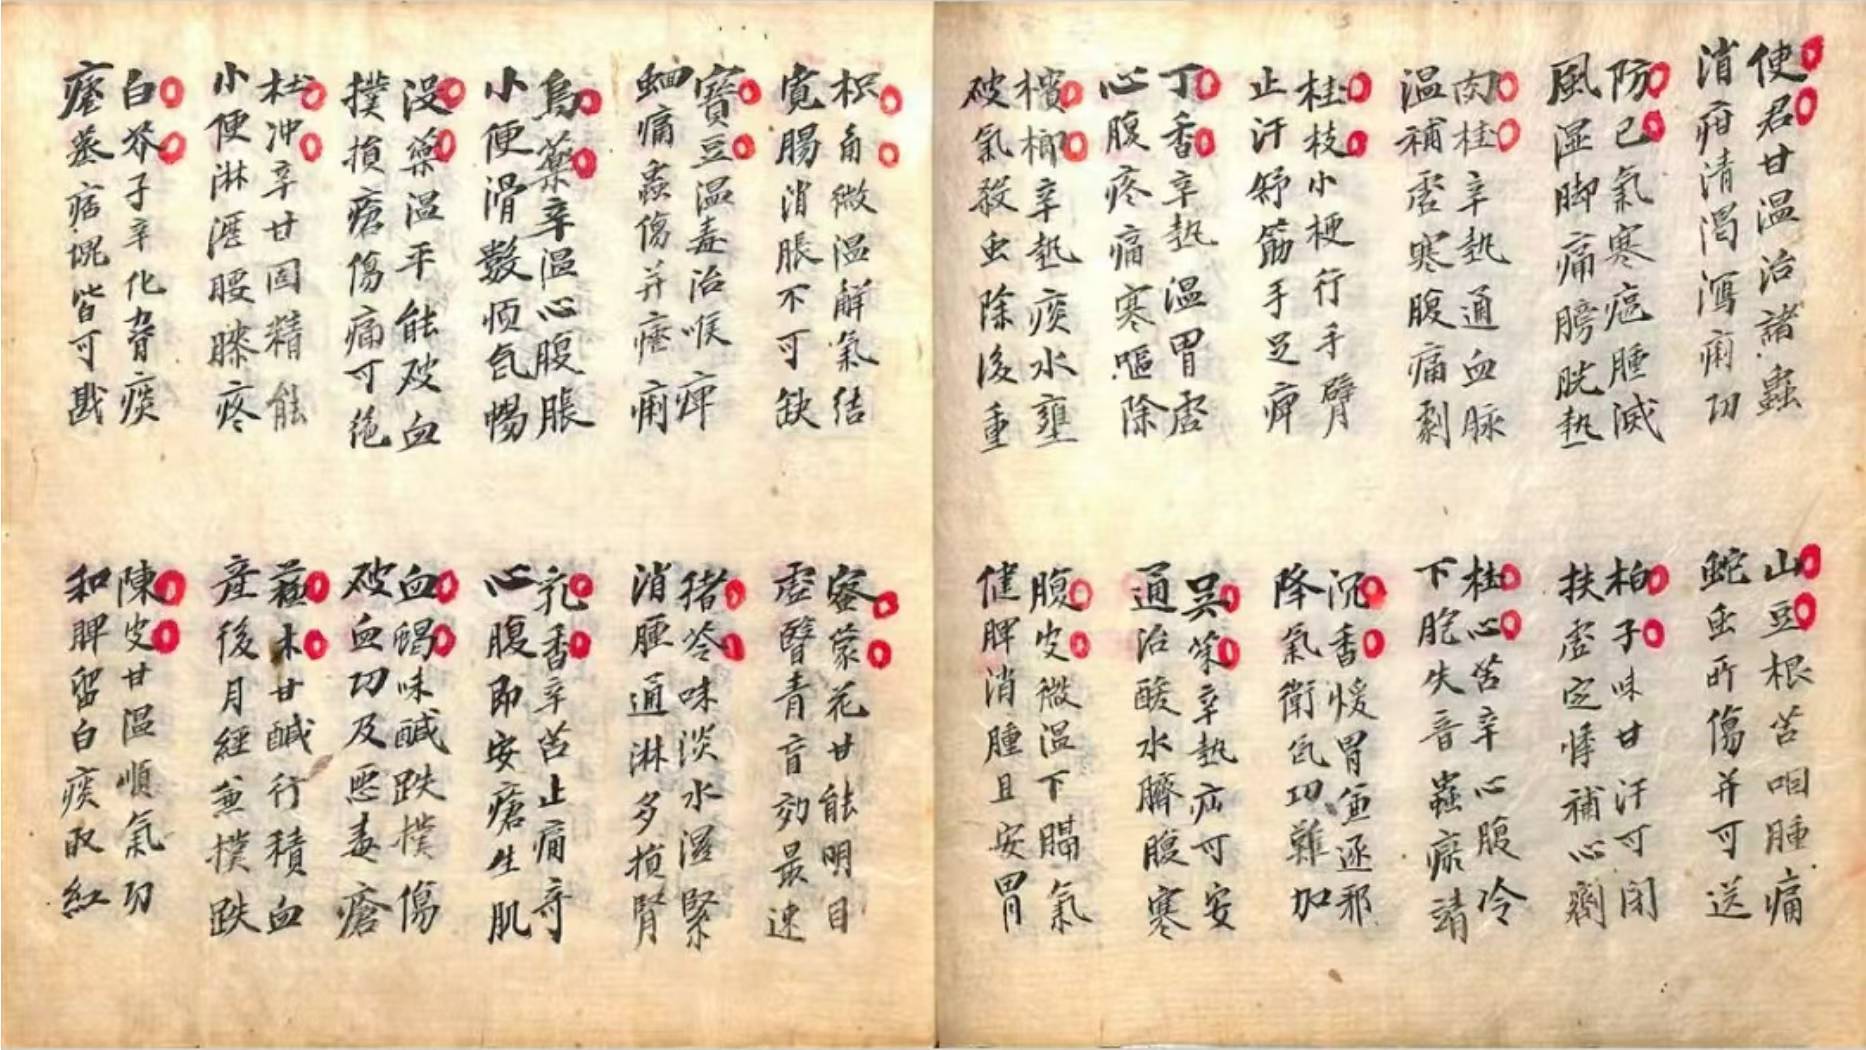 使君甘温治諸蟲
消疳清渴瀉痢功
防己氣寒癌腫滅
風湿脚痛膀胱熱
肉桂辛熱通血脉
温補虚寒腹痛劇
桂枝小梗行手臂
止汗舒筋手足痺
丁香辛熱温胃虚
心腹疼痛寒嘔除
檳榔辛熱痰水壅
破氣殺虫除後重
山豆根苦咽腫痛
蛇虫所傷并可送
柏子味甘汗可閉
扶虚定悸補心劑
桂心苦辛心腹冷
下胞失音蟲瘀請
沉香煖胃並逐邪
降氣衛氣功難加
吴茱辛熱疝可安
通治酸水臍腹寒
腹皮微温下膈氣
健脾消腫且安胃
枳壳微温解氣结
寛腸消脹不可缺
寶豆温毒治喉痺
蛔痛蟲傷并瘧痢
烏藥辛温心腹脹
小便滑數順気暢
没藥温平能破血
撲損瘡傷痛可绝
杜冲辛甘固精能
小便淋澀腰膝疼
白芥子辛化脅痰
瘧蒸痞塊皆可戡
蜜蒙花甘能明目
虚瞖青盲効最速
猪苓味淡水濕緊
消腫通淋多損腎
乳香辛苦止痛奇
心腹即安瘡生肌
血蝎味鹹跌撲傷
破血功及悪毒瘡
蘓木甘鹹行積血
産後月經兼撲跌
陳皮甘温順氣功
和脾留白痰取紅